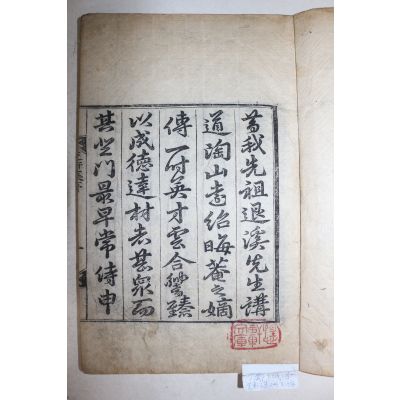 昔我先祖退溪先生講
道陶山紹晦菴之嫡
傳一時英才雲合響臻
以成德達材者甚衆而
其登門最早常侍申